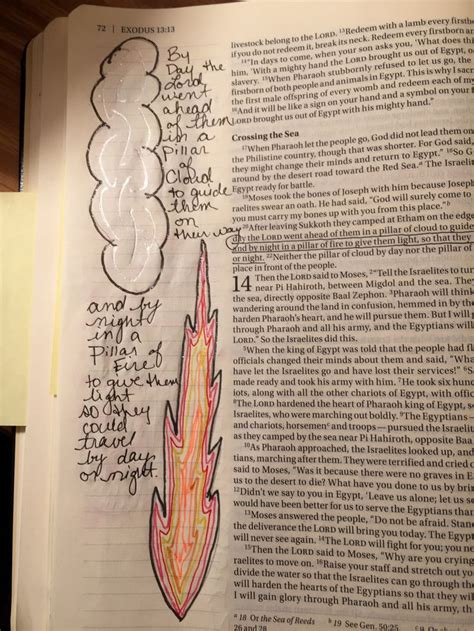 72 | EXODUS 13:13
By
Day the
Lord
went
ahead
of them
in a
Pillar
of
Cloud
to guide
them
on
their way
and by
night
in a
Pillar
of
Fire
to give them
light
so they
could
travel
by day
or night.
livestock belong to the LORD. 13Redeem with a lamb every firstbo
if you do not redeem it, break its neck. Redeem every firstborn am
14"In days to come, when your son asks you, 'What does thi
him, 'With a mighty hand the LORD brought us out of Egypt, o
slavery. 15When Pharaoh stubbornly refused to let us go, the
firstborn of both people and animals in Egypt. This is why I sacr
the first male offspring of every womb and redeem each of my
16And it will be like a sign on your hand and a symbol on your f
LORD brought us out of Egypt with his mighty hand."
Crossing the Sea
17When Pharaoh let the people go, God did not lead them on
the Philistine country, though that was shorter. For God said,
they might change their minds and return to Egypt." 18So G
around by the desert road toward the Red Sea. a The Israelites
Egypt ready for battle.
19Moses took the bones of Joseph with him because Joseph
raelites swear an oath. He had said, "God will surely come to
you must carry my bones up with you from this place." b
20After leaving Sukkoth they camped at Etham on the edge
day the LORD went ahead of them in a pillar of cloud to guide
and by night in a pillar of fire to give them light, so that they
or night. 22Neither the pillar of cloud by day nor the pillar of
place in front of the people.
14 Then the LORD said to Moses, 2"Tell the Israelites to tur
near Pi Hahiroth, between Migdol and the sea. They
the sea, directly opposite Baal Zephon. 3Pharaoh will think
wandering around the land in confusion, hemmed in by the
harden Pharaoh's heart, and he will pursue them. But I will g
through Pharaoh and all his army, and the Egyptians will
LORD." So the Israelites did this.
5When the king of Egypt was told that the people had fl
officials changed their minds about them and said, "What
have let the Israelites go and have lost their services!" 6S
made ready and took his army with him. 7He took six hund
iots, along with all the other chariots of Egypt, with offi
8The LORD hardened the heart of Pharaoh king of Egypt, s
Israelites, who were marching out boldly. 9The Egyptians —
and chariots, horsemen c and troops — pursued the Israelit
as they camped by the sea near Pi Hahiroth, opposite Baal
10As Pharaoh approached, the Israelites looked up, and
tians, marching after them. They were terrified and cried
said to Moses, "Was it because there were no graves in E
us to the desert to die? What have you done to us by brin
12Didn't we say to you in Egypt, 'Leave us alone; let us se
would have been better for us to serve the Egyptians than
13Moses answered the people, "Do not be afraid. Stand
the deliverance the LORD will bring you today. The Egyp
will never see again. 14The LORD will fight for you; you ne
15Then the LORD said to Moses, "Why are you crying
raelites to move on. 16Raise your staff and stretch out yo
divide the water so that the Israelites can go through th
will harden the hearts of the Egyptians so that they will
I will gain glory through Pharaoh and all his army, th
a 18 Or the Sea of Reeds b 19 See Gen. 50:25
26 and 28